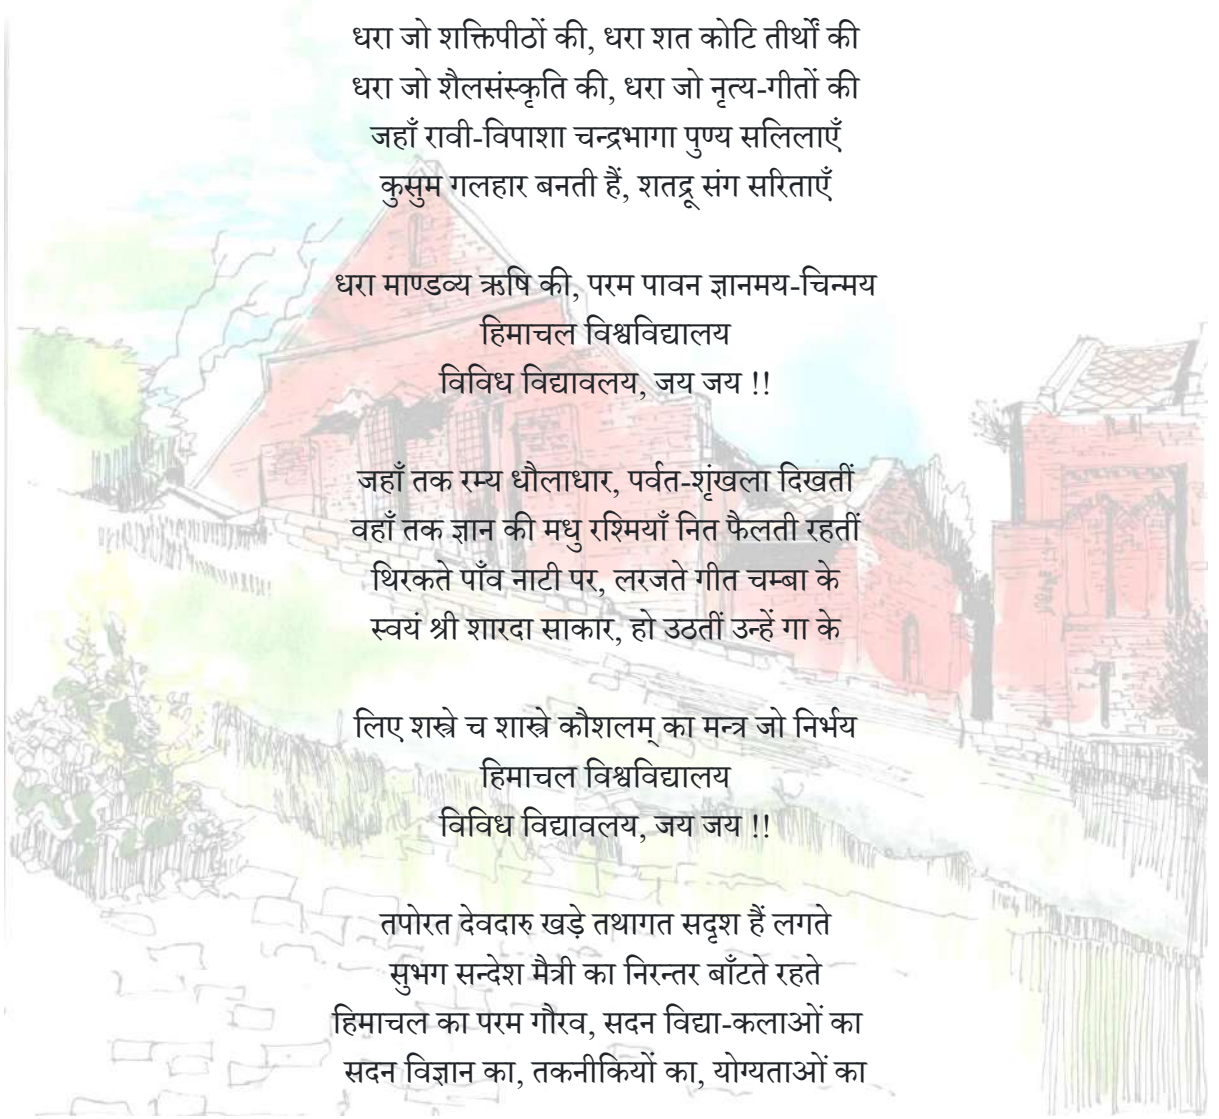 धरा जो शक्तिपीठों की, धरा शत कोटि तीर्थों की
धरा जो शैलसंस्कृति की, धरा जो नृत्य-गीतों की
जहाँ रावी-विपाशा चन्द्रभागा पुण्य सलिलाएँ
कुसुम गलहार बनती हैं, शतद्रू संग सरिताएँ
धरा माण्डव्य ऋषि की, परम पावन ज्ञानमय-चिन्मय
हिमाचल विश्वविद्यालय
विविध विद्यावलय, जय जय !!
जहाँ तक रम्य धौलाधार, पर्वत-शृंखला दिखतीं
वहाँ तक ज्ञान की मधु रश्मियाँ नित फैलती रहतीं
थिरकते पाँव नाटी पर, लरजते गीत चम्बा के
स्वयं श्री शारदा साकार, हो उठतीं उन्हें गा के
लिए शस्त्रे च शास्त्रे कौशलम् का मन्त्र जो निर्भय
हिमाचल विश्वविद्यालय
विविध विद्यावलय, जय जय !!
तपोरत देवदारु खड़े तथागत सदृश हैं लगते
सुभग सन्देश मैत्री का निरन्तर बाँटते रहते
हिमाचल का परम गौरव, सदन विद्या-कलाओं का
सदन विज्ञान का, तकनीकियों का, योग्यताओं का